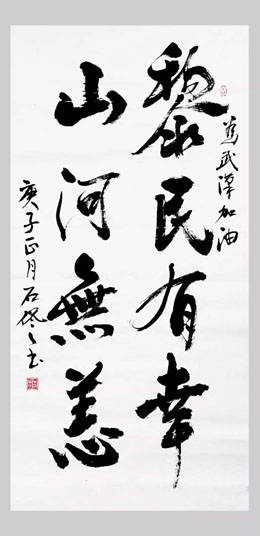 为武汉加油
黎民有幸
山河無恙
庚子正月石佟之书